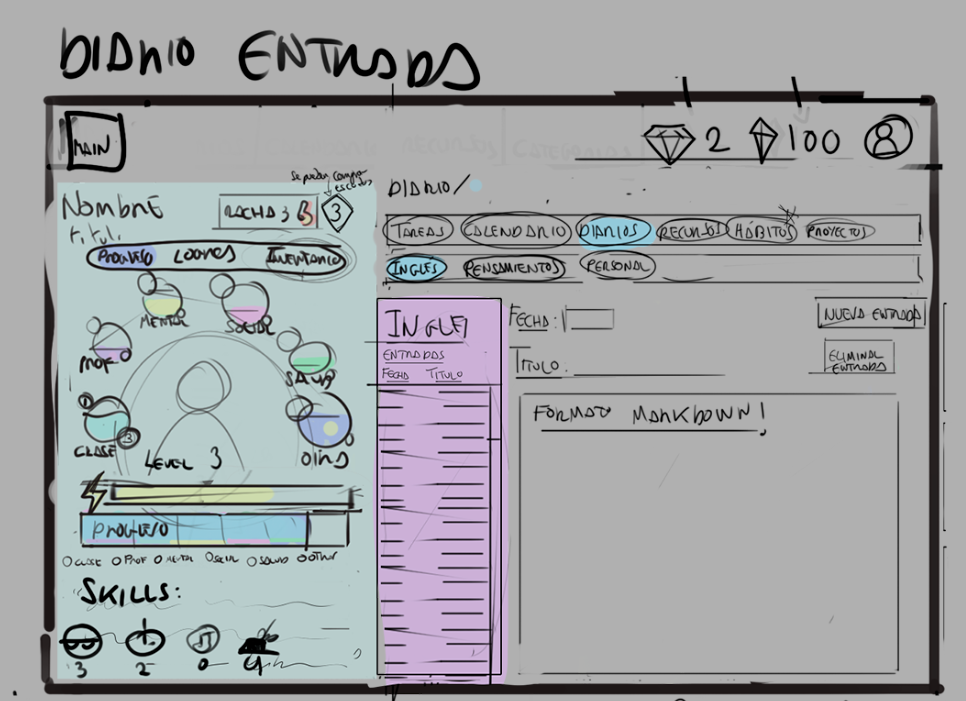 DIARIO ENTRADA
MAIN
2
100
Nombre
RACHA: 3
3
Se puede comprar escudos
Titul.
PROGRESO
LOGROS
INVENTARIO
MENTAL
SOCIAL
PROF
SALUD
1
CLASE
3
OTROS
LEVEL 3
PROGRESO
CLASE
PROF
MENTAL
SOCIAL
SALUD
OTROS
SKILLS:
3
2
0
4
DIARIO/
TAREAS
CALENDARIO
DIARIOS
RECURSOS
HÁBITOS
PROYECTOS
INGLÉS
PENSAMIENTOS
PERSONAL
INGLES
ENTRADAS
FECHA TITULO
FECHA:
TITULO:
NUEVA ENTRADA
ELIMINAR
ENTRADA
FORMATO MARKDOWN!